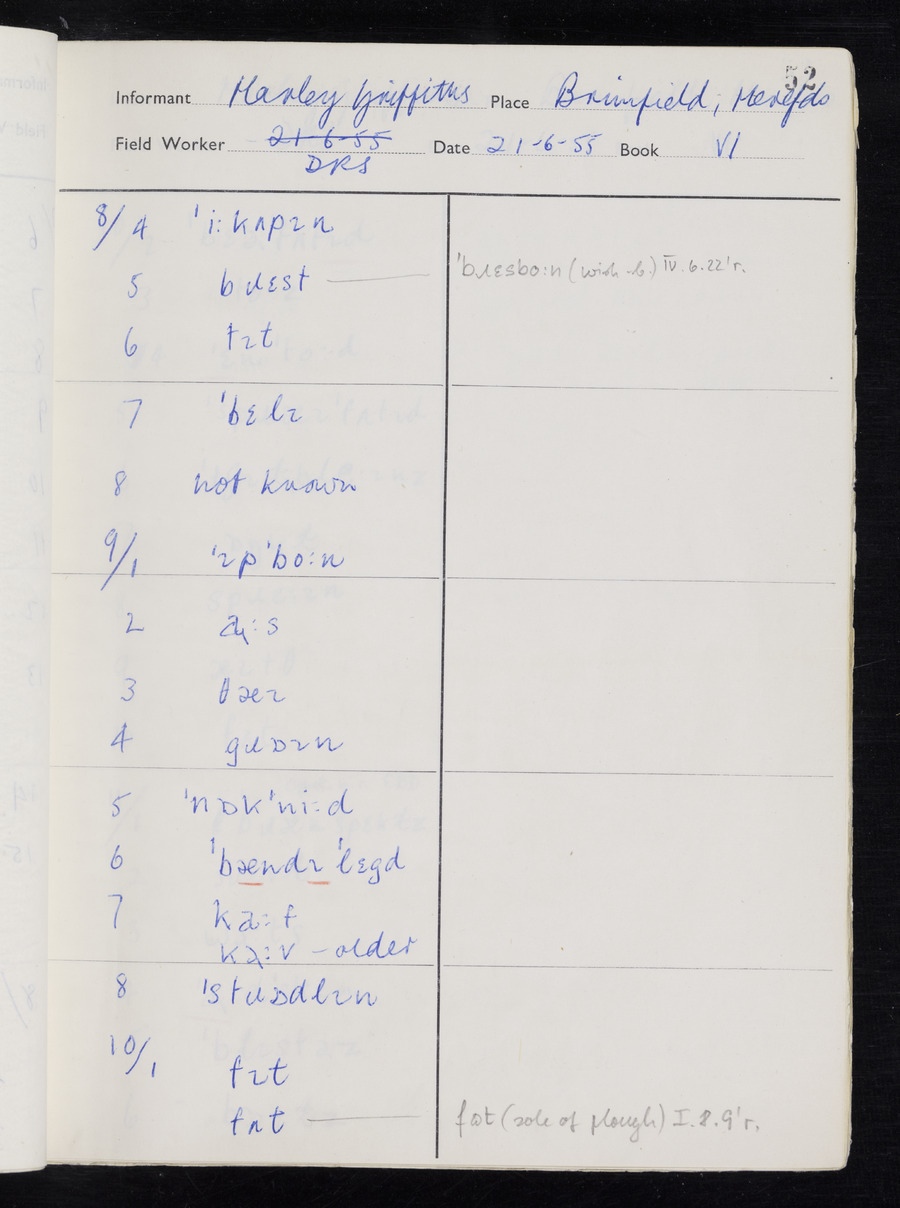 52
Informant Harley Griffiths Place Brimfield, Herefds
Field Worker 21-6-55 Date 21-6-55 Book VI
DRS
8/4 'i:kʌpɪn
5 bɹɛst 'bɹɛsbo:n (wish-b.) IV.6.22'r.
6
7 'bɛlɪ
8 not known
9/1 'ɪp'bo:n
2
3 θaɪ
4 gɹɒɪn
5 'nɒk'ni:d
6 'bændɪ 'lɛgd
7 ka:f
ka:v – older
8 'stɹɒdlɪn
10/1 fɪt
fʌt fɷt (sole of plough) I.8.9'r.